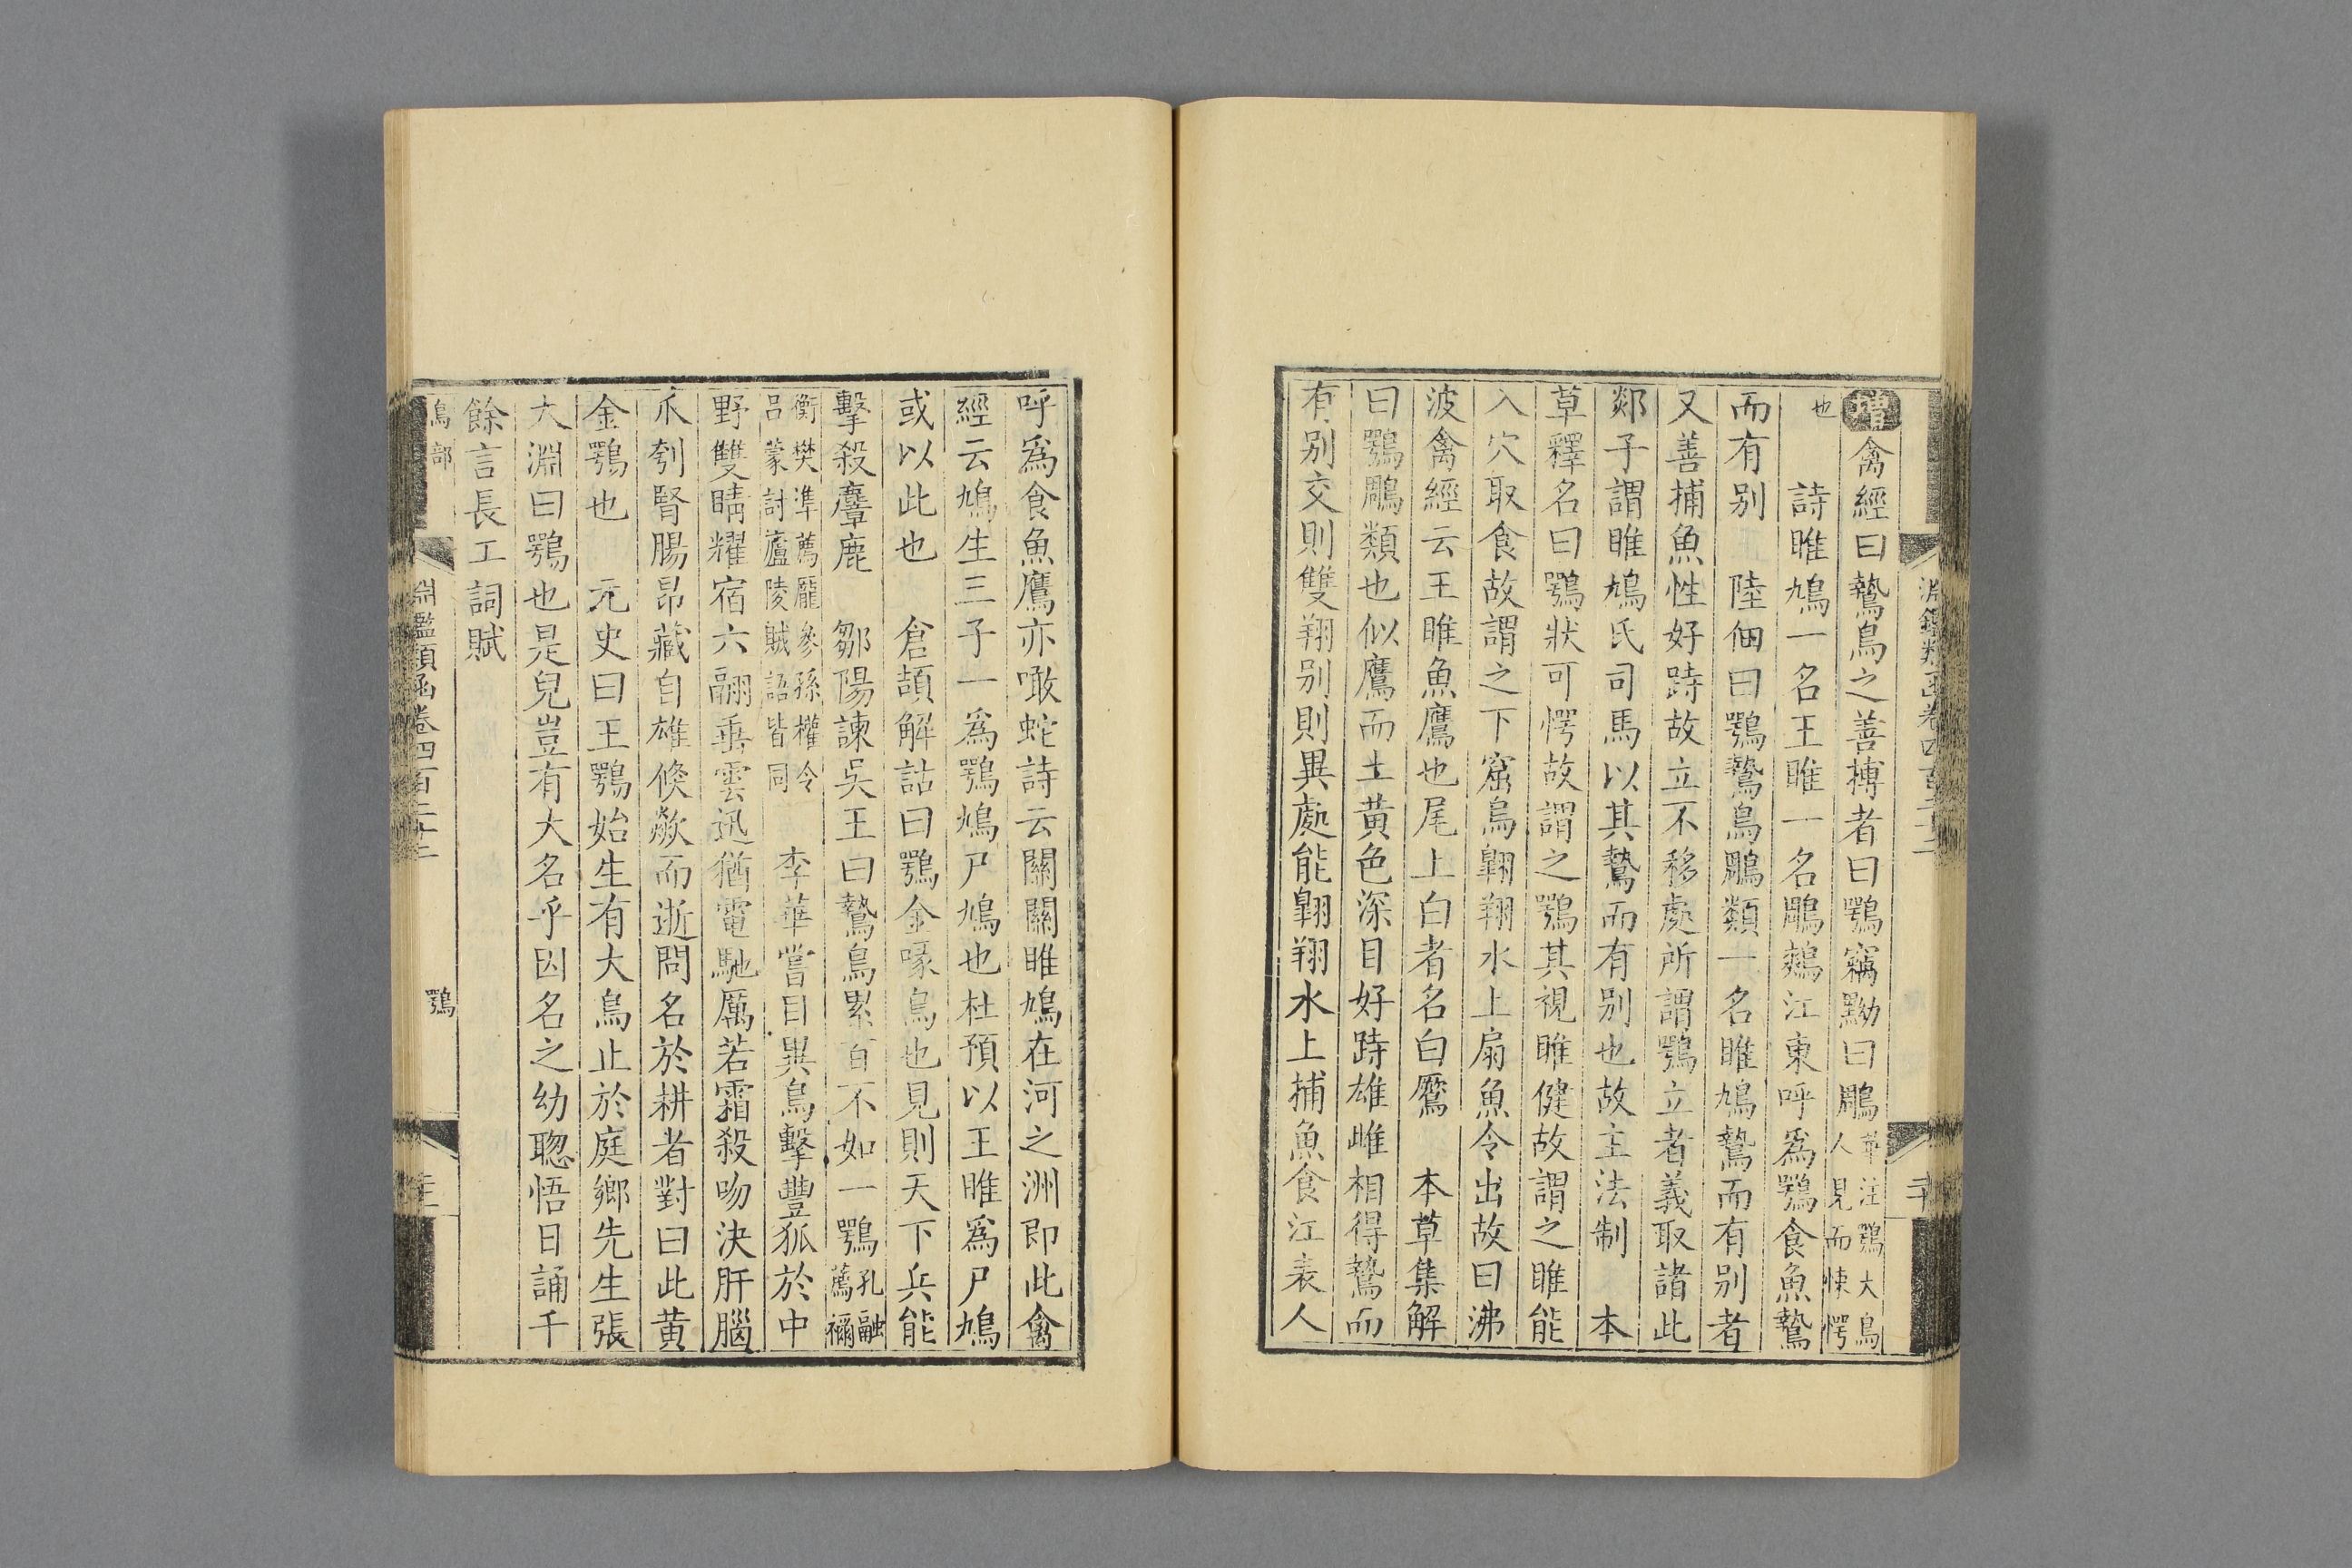 增禽經曰鷙鳥之善搏者曰鶚竊黝曰鵰華注鶚大鳥人見而悚愕
也　詩雎鳩一名王雎一名鵰鷄江東呼爲鶚食魚鷙
而有別　陸佃曰鶚鷙鳥鵰類一名雎鳩鷙而有別者
又善捕魚性好跱故立不移處所謂鶚立者義取諸此
郯子謂雎鳩氏司馬以其鷙而有別也故主法制　本
草釋名曰鶚狀可愕故謂之鶚其視雎健故謂之雎能
入穴取食故謂之下窟烏翱翔水上扇魚令出故曰沸
波禽經云王雎魚鷹也尾上白者名白鷹　本草集解
曰鶚鵰類也似鷹而土黃色深目好跱雄雌相得鷙而
有別交則雙翔別則異處能翱翔水上捕魚食江表人
呼爲食魚鷹亦啖蛇詩云關關雎鳩在河之洲即此禽
經云鳩生三子一爲鶚鳩尸鳩也杜預以王雎爲尸鳩
或以此也　倉頡解詁曰鶚金喙鳥也見則天下兵能
擊殺麞鹿　鄒陽諫吳王曰鷙鳥累百不如一鶚孔融薦禰
衡樊準薦龐參孫權令呂蒙討廬陵賊語皆同　李華嘗目異鳥擊豐狐於中
野雙睛耀宿六翮垂雲迅猶電馳厲若霜殺吻決肝腦
爪刳腎腸昂藏自雄倏歘而逝問名於耕者對曰此黃
金鶚也　元史曰王鶚始生有大鳥止於庭鄉先生張
大淵曰鶚也是兒豈有大名乎因名之幼聰悟日誦千
餘言長工詞賦
鳥部　淵鑑類函卷四百二十二　鶚